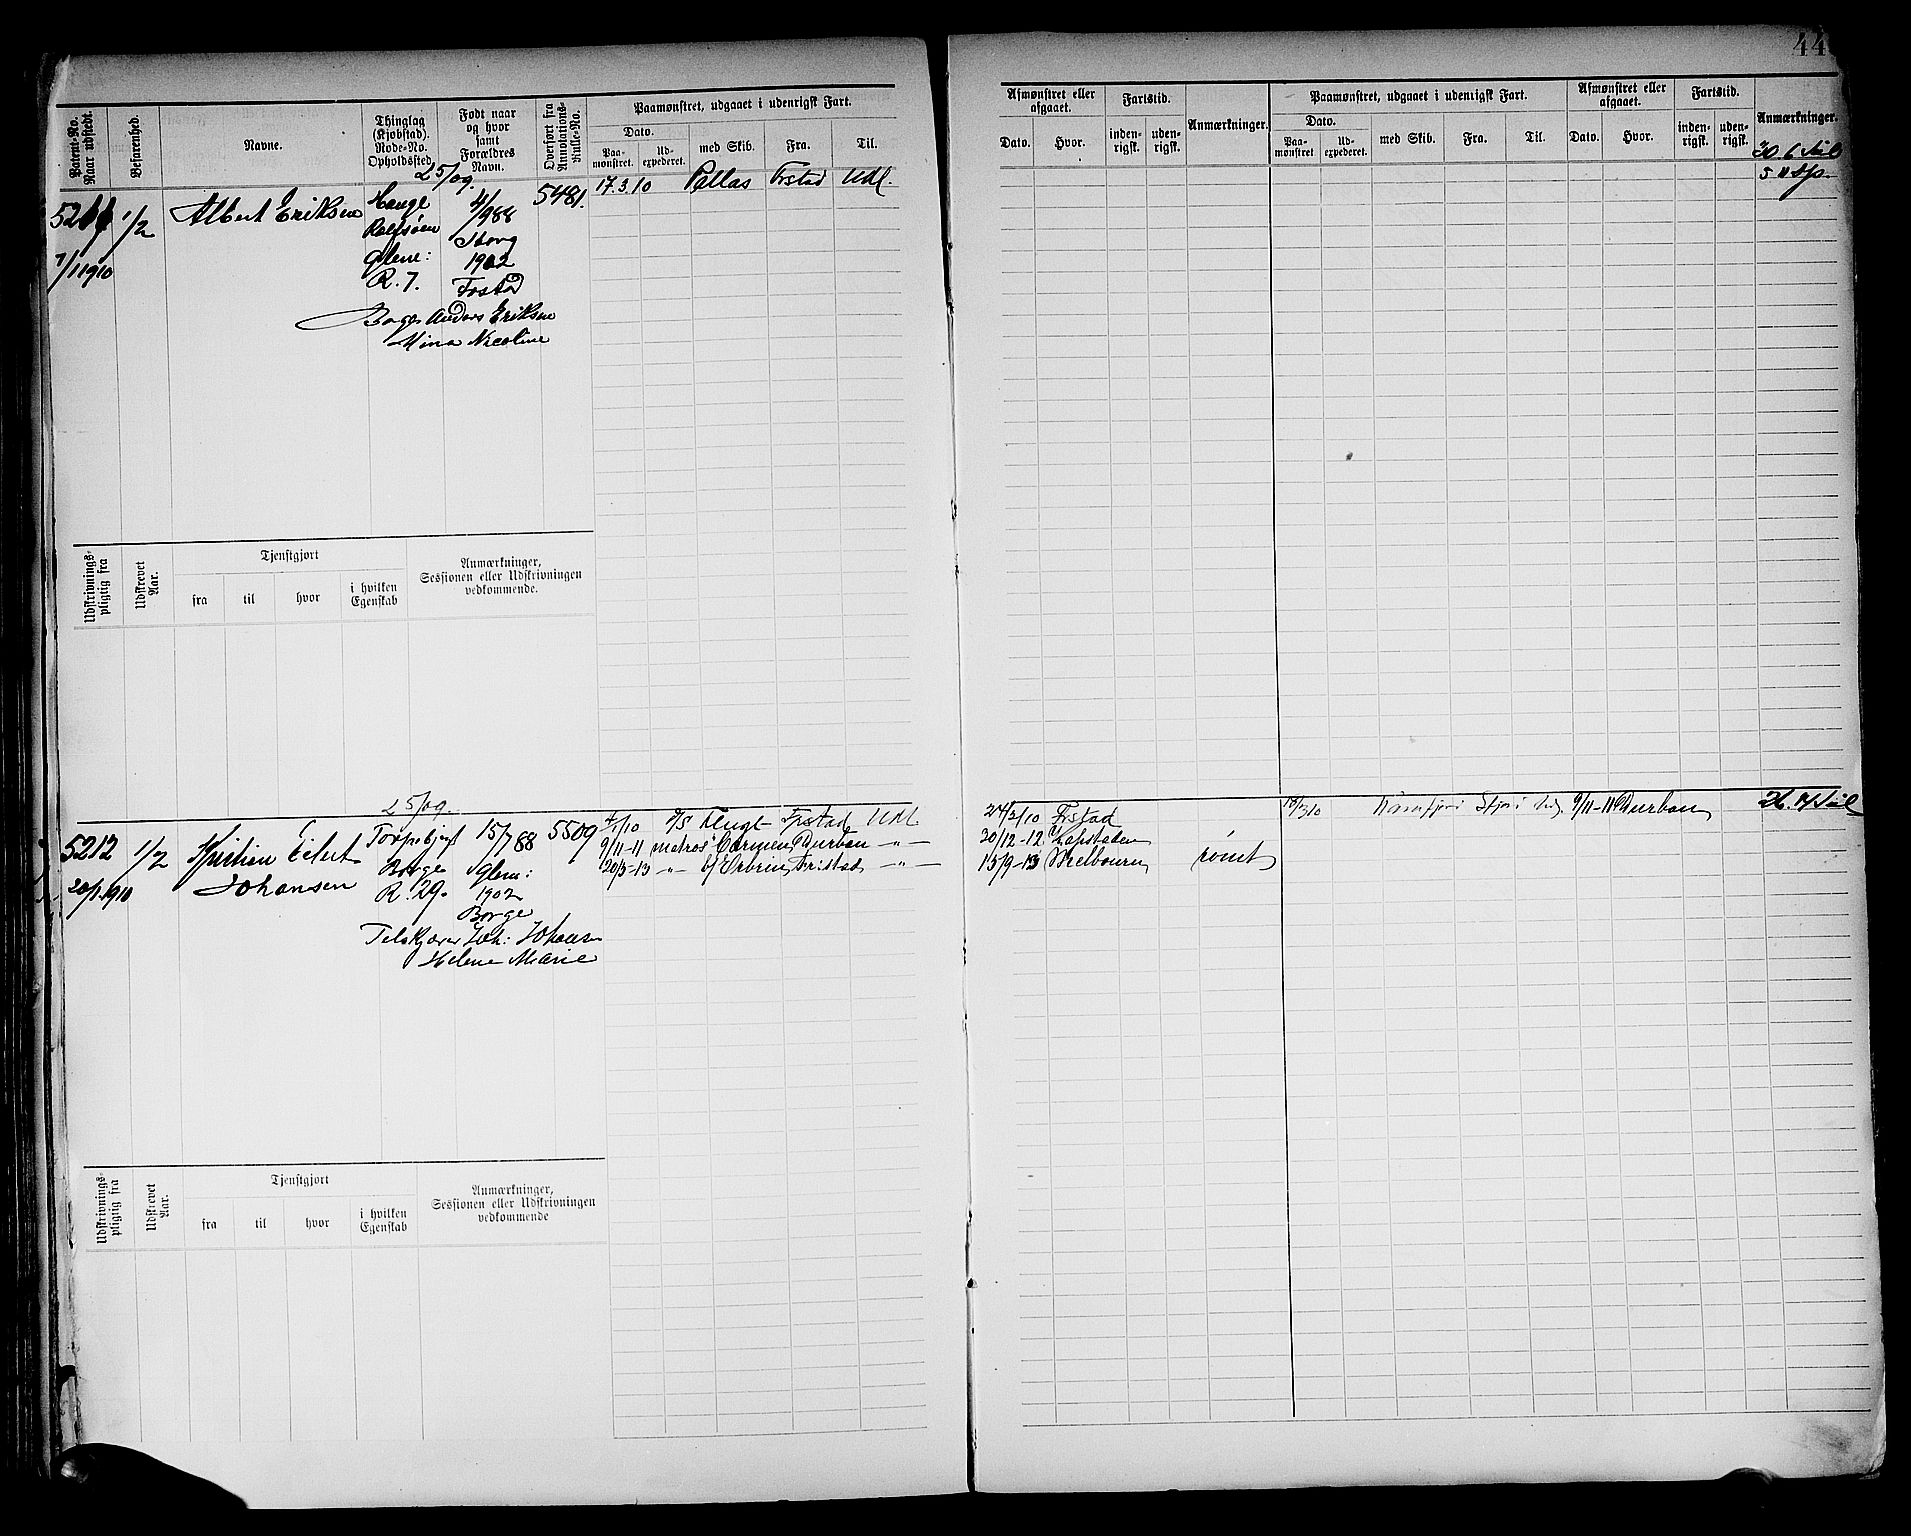 44
Patent-No. Naar udstedt.
Befarenhed.
Navne.
Thinglag (Kjøbstad). Rode-No. Opholdssted
Født naar og hvor samt Forældres Navn.
Overført fra Annotations-Rulle-No.
Paamønstret, udgaaet i udenrigsk Fart.
Dato.
Paa-mønstret.
Ud-expederet.
med Skib.
Fra.
Til.
Afmønstret eller afgaaet.
Dato.
Hvor.
Fartstid.
inden-rigsk.
uden-rigsk.
Anmærkninger.
Paamønstret, udgaaet i udenrigsk Fart.
Dato.
Paa-mønstret
Ud-expederet.
med Skib.
Fra.
Til.
Afmønstret eller afgaaet.
Dato.
Hvor.
Fartstid.
inden-rigsk.
uden-rigsk.
Anmærkninger.
25/09.
5481. 17.3.10 Pallas Frstad Udl.
5211 1/2 Albert Eriksen Hauge 4/988
Rolfsøen Borg
7/1 1910 Glem: 1902
R. 7. Frstad
Borge Anders Eriksen
Mina Nicoline
Udskrivnings-pligtig fra
Udskrevet Aar.
Tjenstgjort
fra
til
hvor
i hvilken Egenskab
Anmærkninger, Sessionen eller Udskrivningen vedkommende.
25/09.
5212 1/2 Kristian Eilert Torpebjerg 15/788 5509
20/1-1910 Johansen Borge Glem:
R. 29. 1902
Borge
Joh: Johansen
Helene Marie
1/10 Frstad Udl 24/2/10 Frstad
9/11-11 matros Carmen Durban -"- 30/12-12 Kapstaden
20/5-13 -"- Fredstad -"- 15/9-13 Melbourn rømt
9/11-11 Durban
Udskrivnings-pligtig fra
Udskrevet Aar.
Tjenstgjort
fra
til
hvor
i hvilken Egenskab
Anmærkninger, Sessionen eller Udskrivningen vedkommende